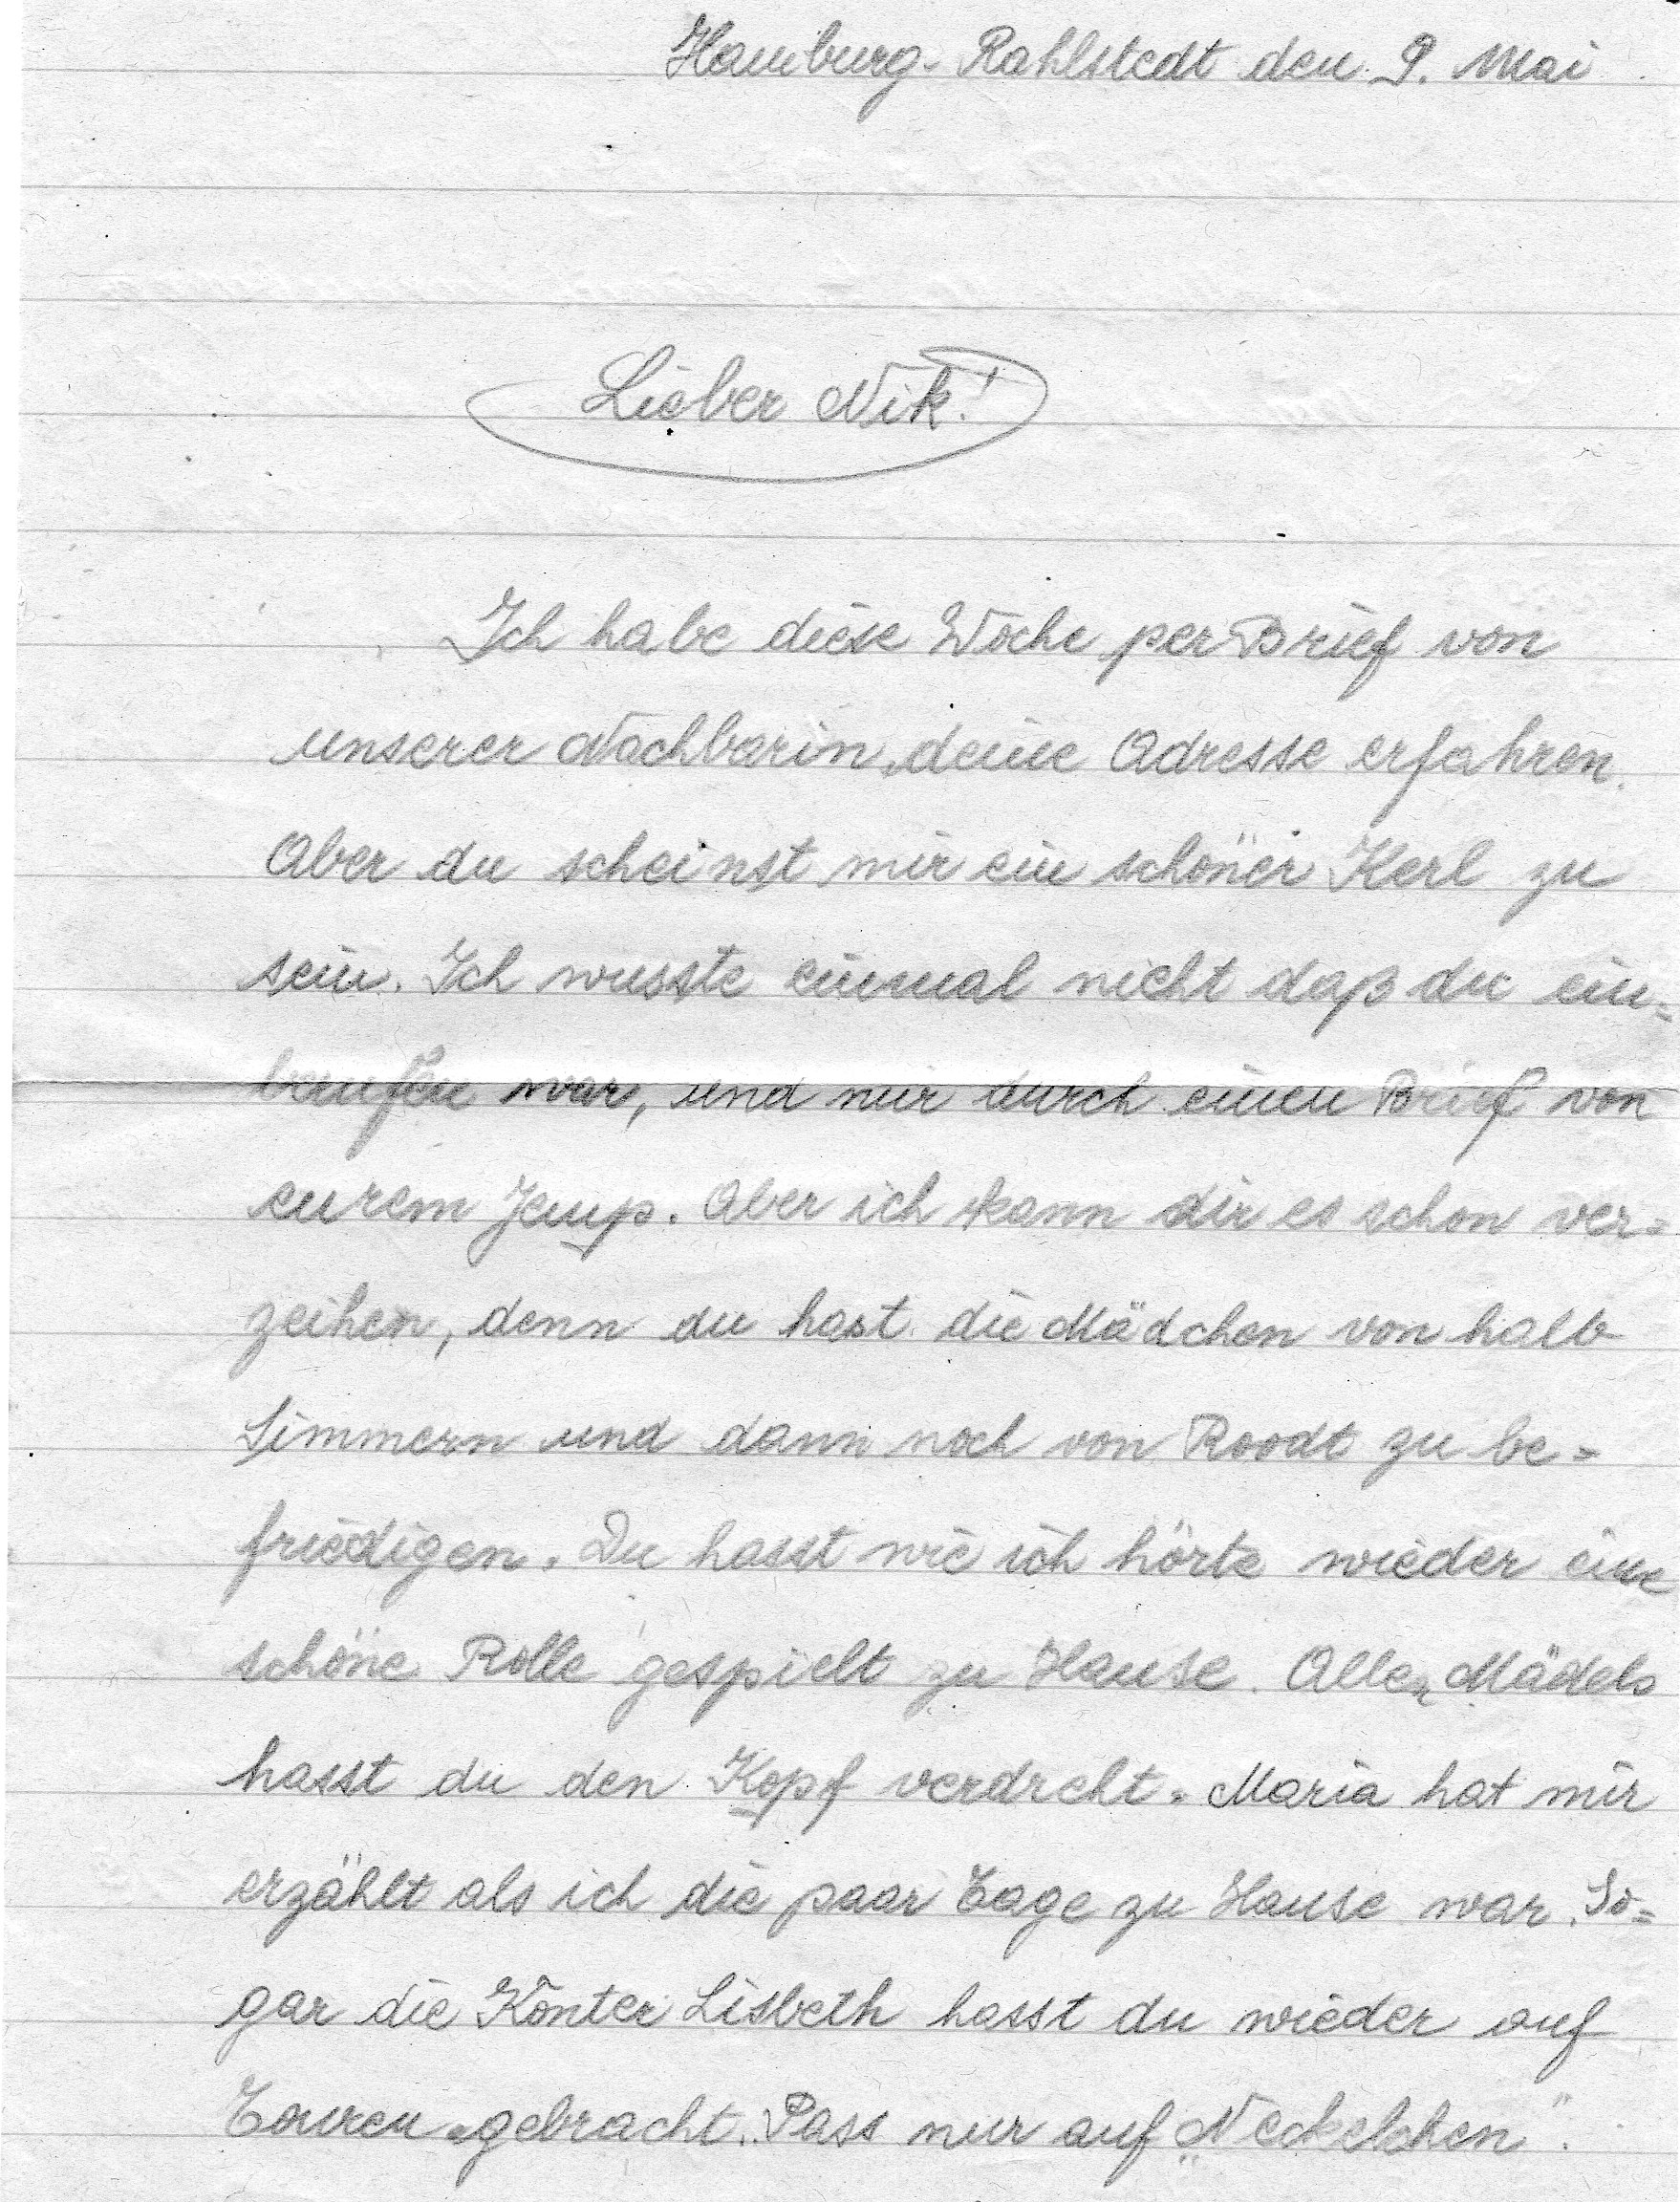 Hamburg-Rahlstedt den 9. Mai
Lieber Nik!
Ich habe diese Woche per Brief von
unserer Nachbarin, deine Adresse erfahren.
Aber du scheinst mir ein schöner Kerl zu
sein. Ich wusste einmal nicht daß du ein=
berufen war, und nur durch einen Brief von
eurem Jemp. Aber ich kann dir es schon ver=
zeihen, denn du hast die Mädchen von halb
Simmern und dann noch von Roodt zu be=
friedigen. Du hasst wie ich hörte wieder eine
schöne Rolle gespielt zu Hause. Allen Mädels
hasst du den Kopf verdreht. Maria hat mir
erzählt als ich die paar Tage zu Hause war. So=
gar die Könter Lisbeth hasst du wieder auf
Touren gebracht. Pass nur auf „Neckelchen".